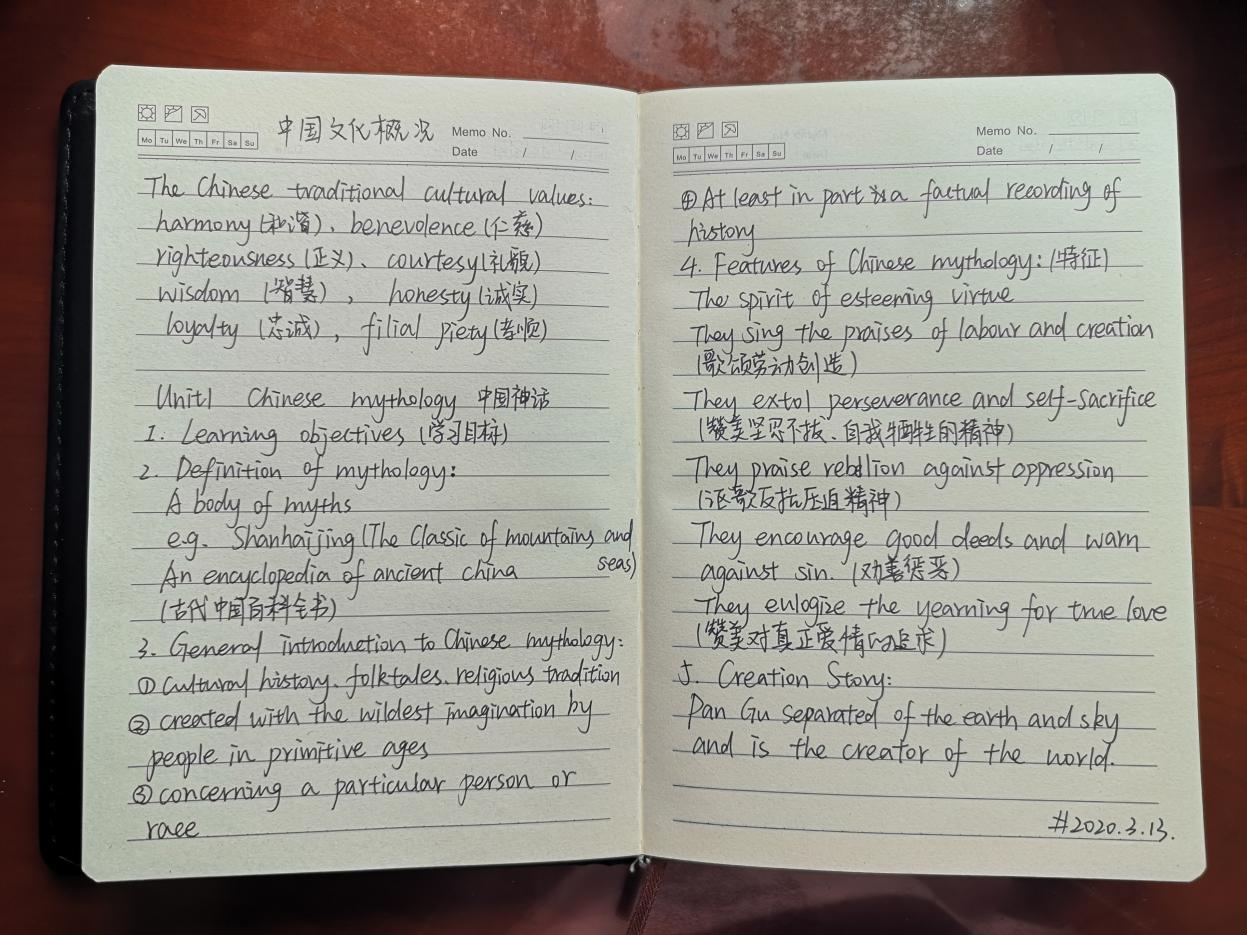 中国文化概况
Memo No.
Mo Tu We Th Fr Sa Su
Date / /
The Chinese traditional cultural values:
harmony(和谐)、benevolence(仁慈)
righteousness(正义)、courtesy(礼貌)
wisdom (智慧), honesty(诚实)
loyalty (忠诚), filial piety(孝顺)
Unit1 Chinese mythology 中国神话
1. Learning objectives (学习目标)
2. Definition of mythology:
A body of myths
e.g. Shanhaijing(The Classic of mountains and
seas)
An encyclopedia of ancient china
(古代中国百科全书)
3. General introduction to Chinese mythology:
①cultural history、folktales、religious tradition
②created with the wildest imagination by
people in primitive ages
③concerning a particular person or
race
Memo No.
Mo Tu We Th Fr Sa Su
Date / /
④At least in part is a factual recording of
history
4. Features of Chinese mythology:(特征)
The spirit of esteeming virtue
They sing the praises of labour and creation
(歌颂劳动创造)
They extol perseverance and self-sacrifice
(赞美坚忍不拔、自我牺牲的精神)
They praise rebellion against oppression
(讴歌反抗压迫精神)
They encourage good deeds and warn
against sin. (劝善惩恶)
They eulogize the yearning for true love
(赞美对真正爱情的追求)
5. Creation Story:
Pan Gu separated of the earth and sky
and is the creator of the world.
#2020.3.13.